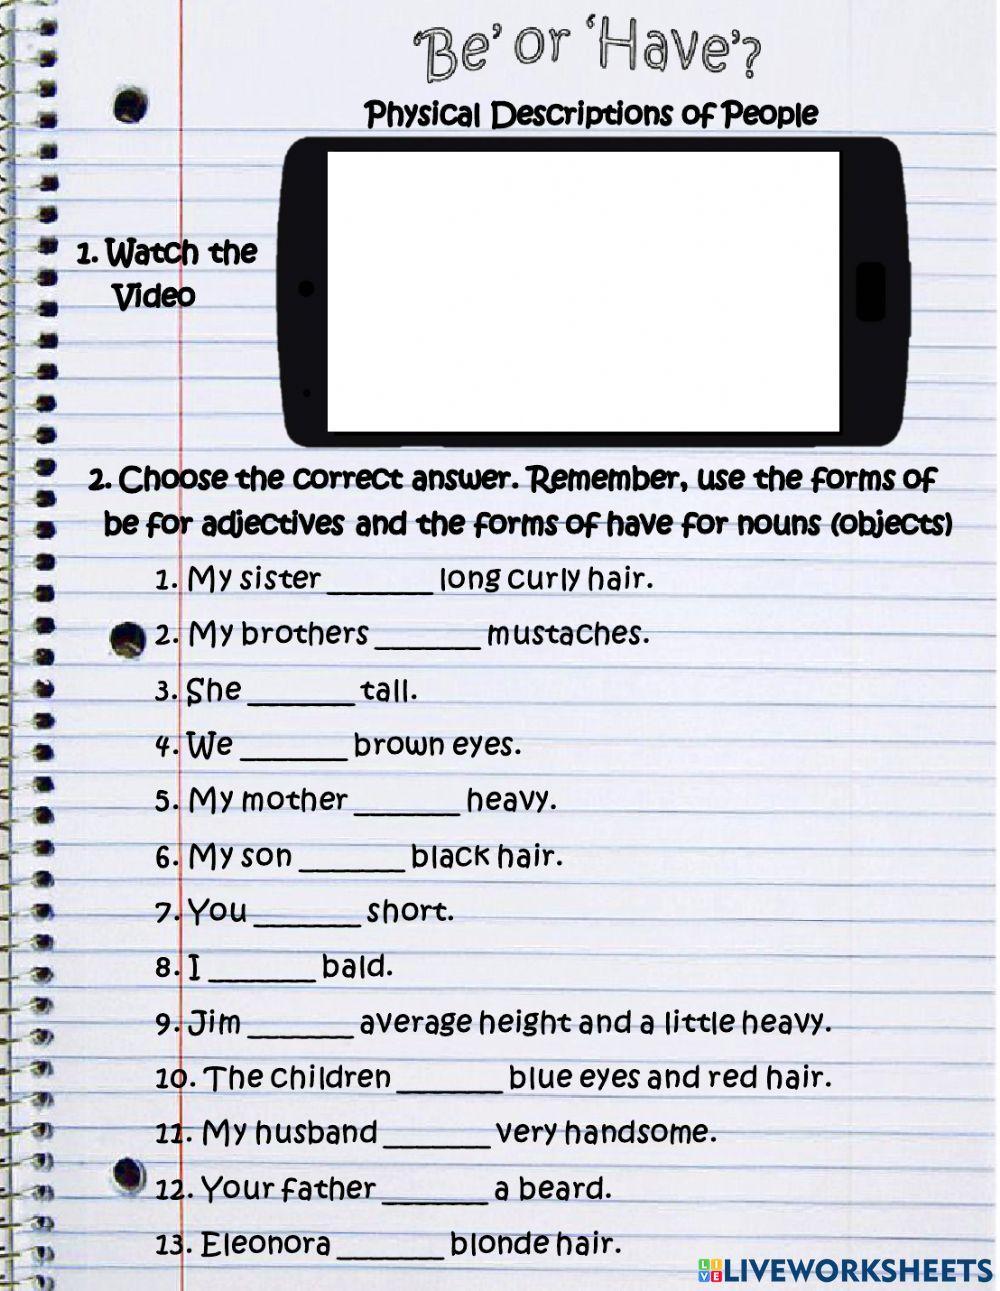 'Be' or 'Have'?
Physical Descriptions of People
1. Watch the
Video
2. Choose the correct answer. Remember, use the forms of
be for adjectives and the forms of have for nouns (objects)
1. My sister _______ long curly hair.
2. My brothers _______ mustaches.
3. She _______ tall.
4. We _______ brown eyes.
5. My mother _______ heavy.
6. My son _______ black hair.
7. You _______ short.
8. I _______ bald.
9. Jim _______ average height and a little heavy.
10. The children _______ blue eyes and red hair.
11. My husband _______ very handsome.
12. Your father _______ a beard.
13. Eleonora _______ blonde hair.
LIVE LIVEWORKSHEETS